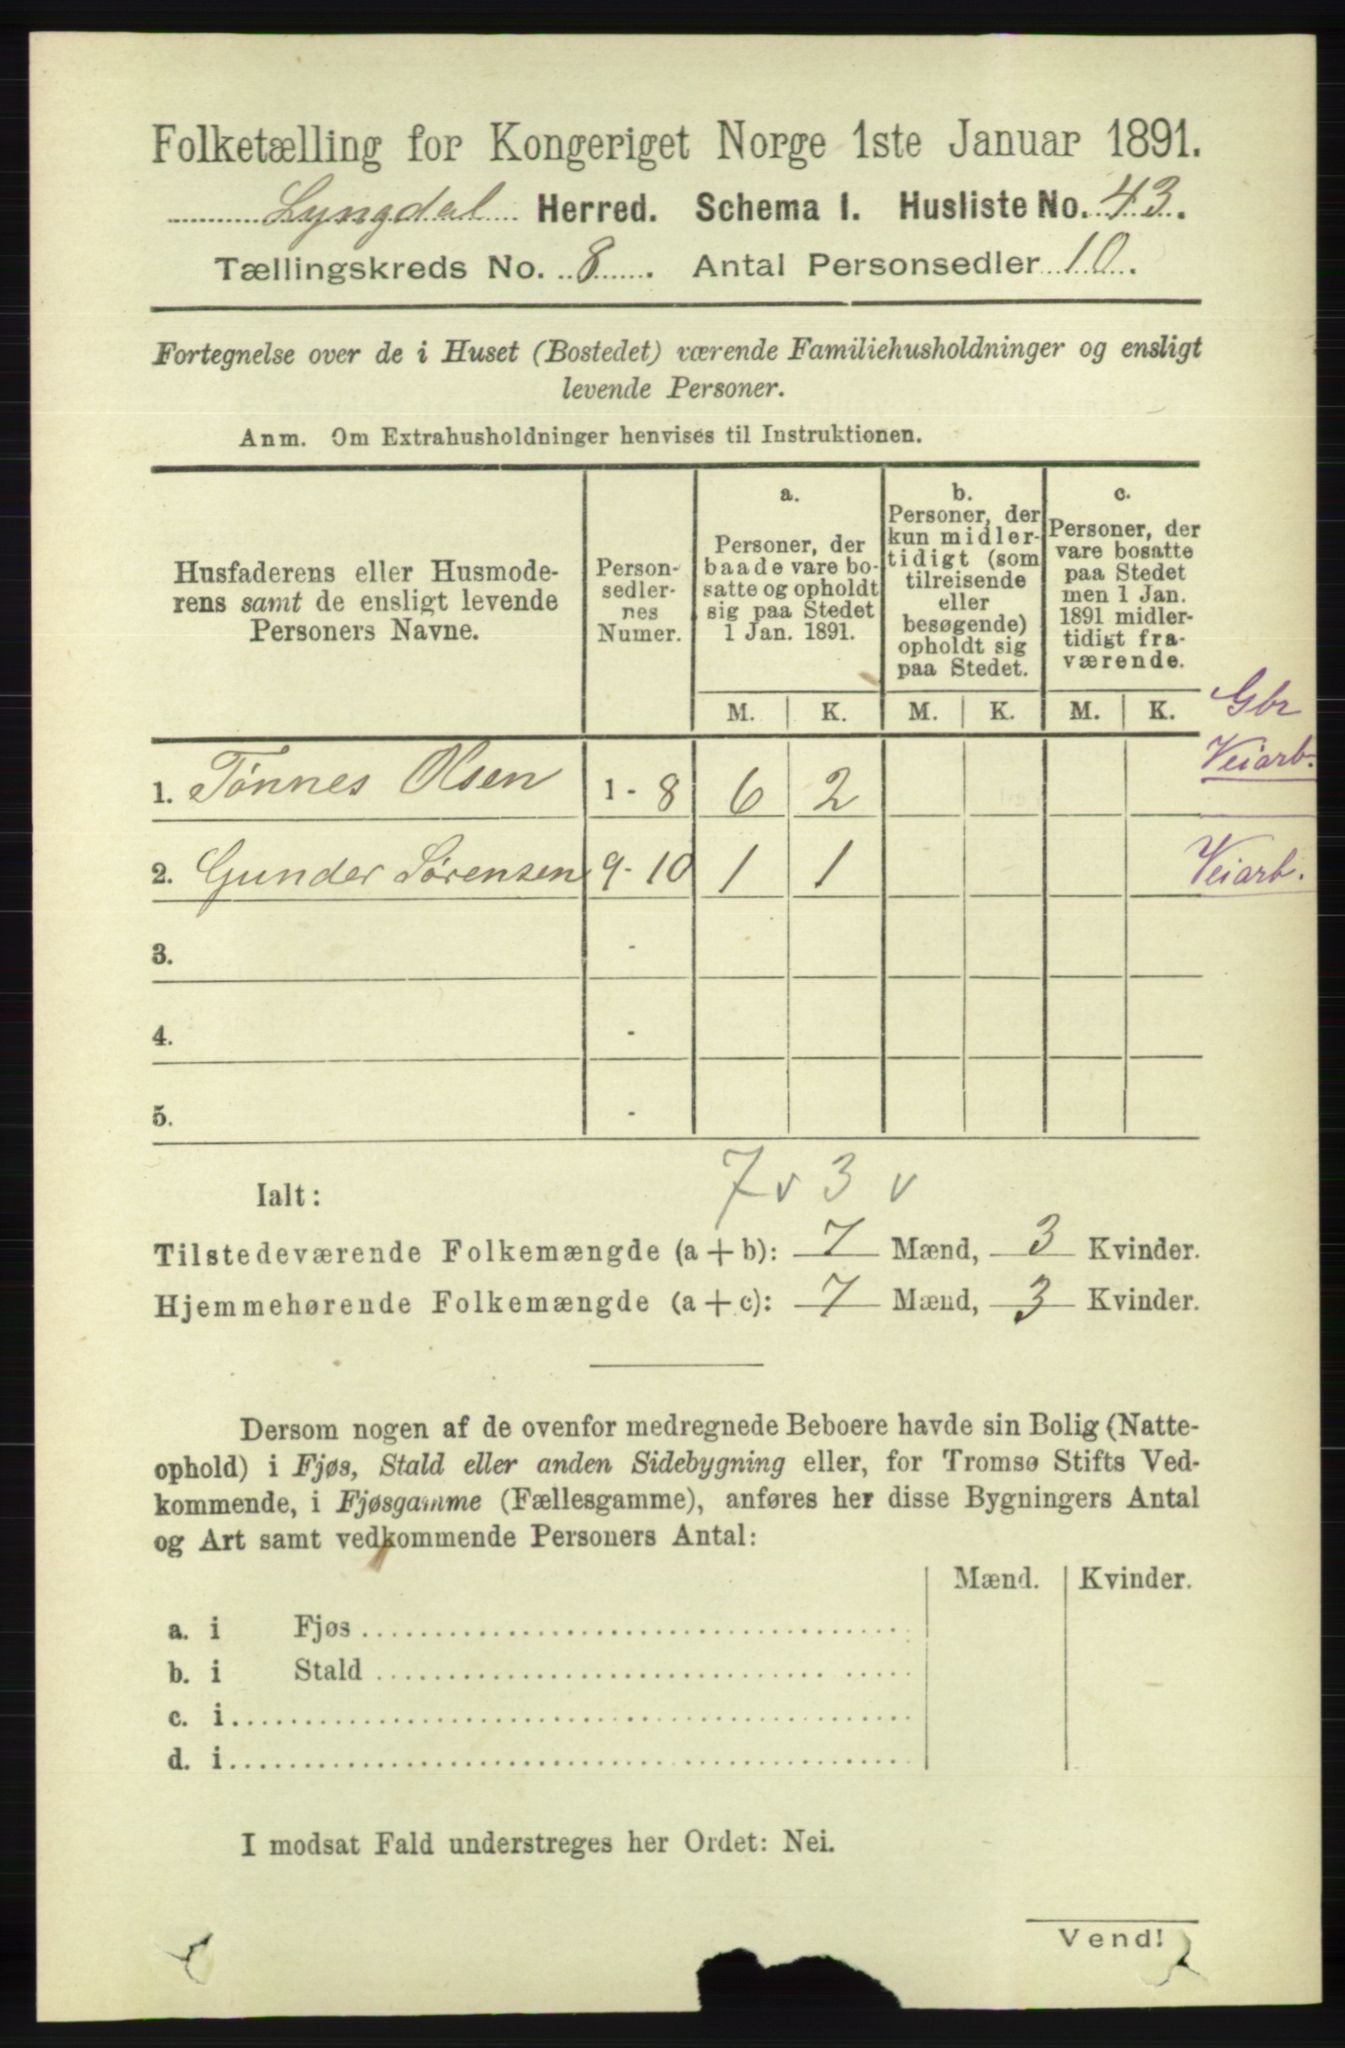 Folketælling for Kongeriget Norge 1ste Januar 1891.
Lyngdal Herred. Schema I. Husliste No. 43.
Tællingskreds No. 8. Antal Personsedler 10.
Fortegnelse over de i Huset (Bostedet) værende Familiehusholdninger og ensligt
levende Personer.
Anm. Om Extrahusholdninger henvises til Instruktionen.
Husfaderens eller Husmode-
rens samt de ensligt levende
Personers Navne.
Person-
sedler-
nes
Numer.
a.
Personer, der
baade vare bo-
satte og opholdt
sig paa Stedet
1 Jan. 1891.
b.
Personer, der
kun midler-
tidigt (som
tilreisende
eller
besøgende)
opholdt sig
paa Stedet.
c.
Personer, der
vare bosatte
paa Stedet
men 1 Jan.
1891 midler-
tidigt fra-
værende.
M. K. M. K. M. K.
Gbr
Veiarb.
1. Tønnes Olsen 1 - 8 6 2
2. Gunder Sørensen 9 - 10 1 1 Veiarb.
3. -
4. -
5. -
7 v 3 v
Ialt:
Tilstedeværende Folkemængde (a + b): 7 Mænd, 3 Kvinder.
Hjemmehørende Folkemængde (a + c): 7 Mænd, 3 Kvinder.
Dersom nogen af de ovenfor medregnede Beboere havde sin Bolig (Natte-
ophold) i Fjøs, Stald eller anden Sidebygning eller, for Tromsø Stifts Ved-
kommende, i Fjøsgamme (Fællesgamme), anføres her disse Bygningers Antal
og Art samt vedkommende Personers Antal:
Mænd. Kvinder.
a. i Fjøs
b. i Stald
c. i
d. i
I modsat Fald understreges her Ordet: Nei.
Vend!